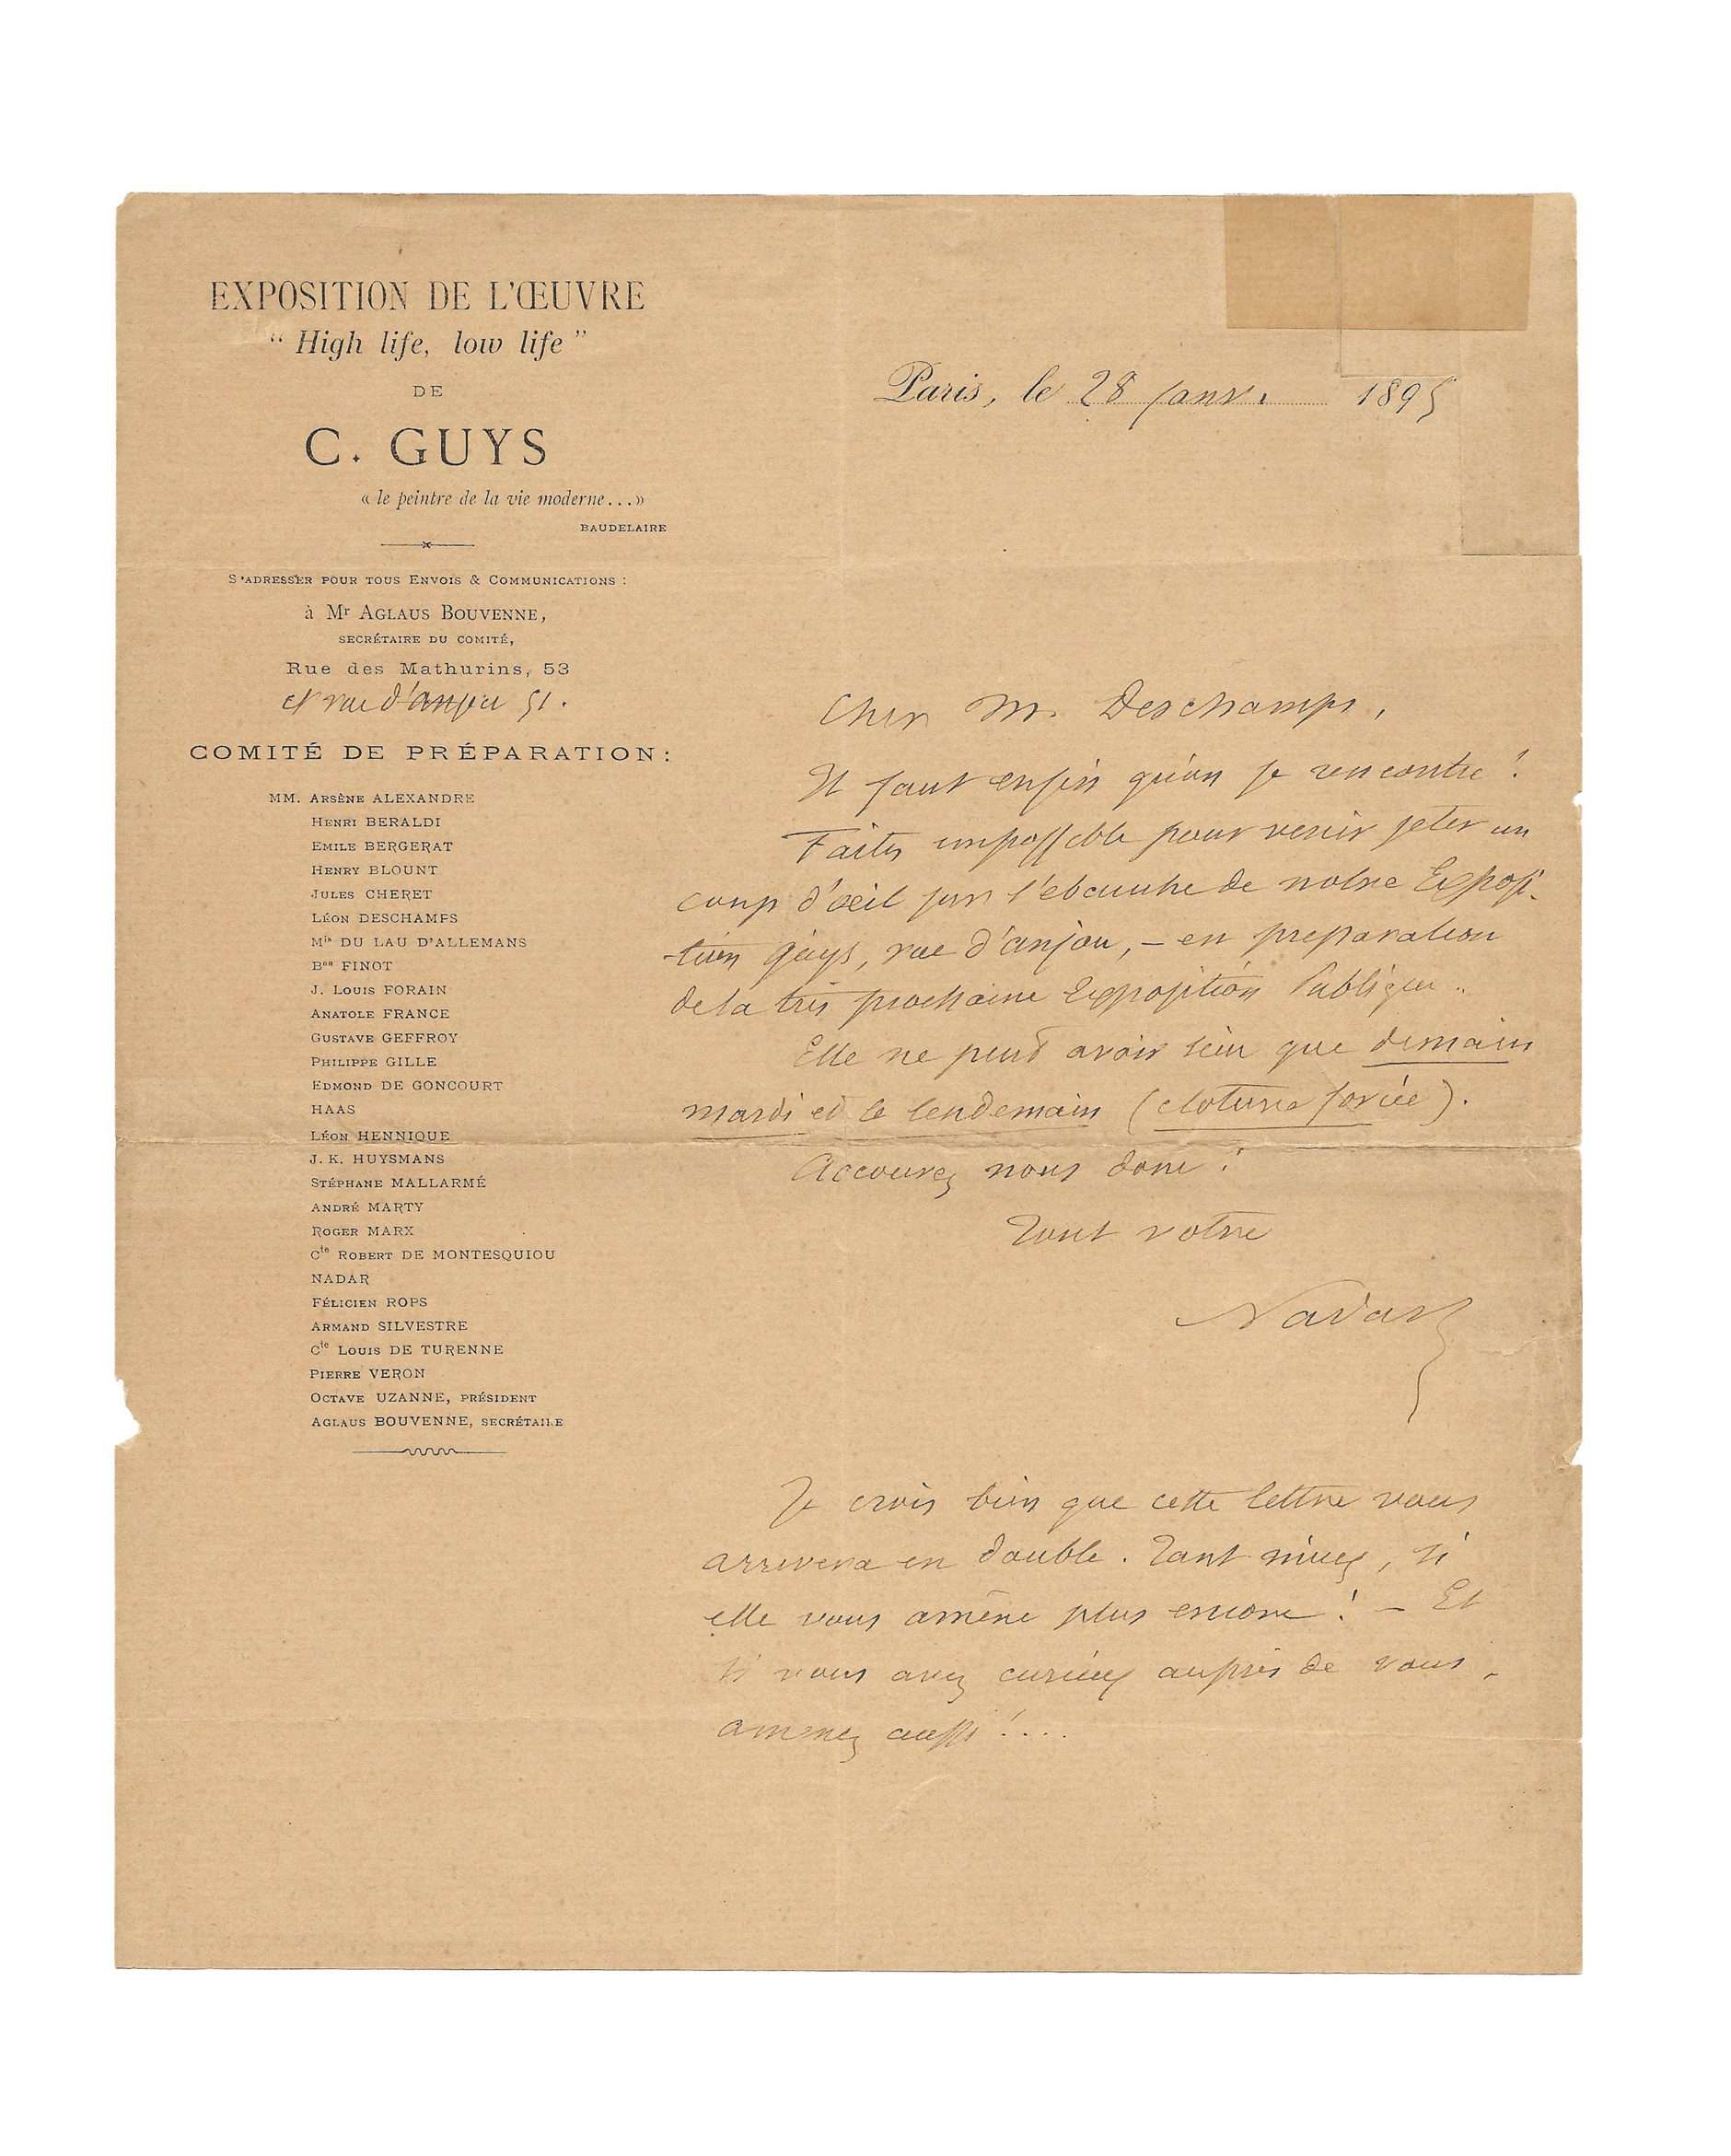 EXPOSITION DE L'ŒUVRE
“ High life, low life ”
DE
C. GUYS
« le peintre de la vie moderne...»
BAUDELAIRE
S'ADRESSER POUR TOUS ENVOIS & COMMUNICATIONS :
à Mr AGLAUS BOUVENNE,
SECRÉTAIRE DU COMITÉ,
Rue des Mathurins, 53
et rue d'anjou 51.
COMITÉ DE PRÉPARATION :
MM. ARSÈNE ALEXANDRE
HENRI BERALDI
EMILE BERGERAT
HENRY BLOUNT
JULES CHERET
LÉON DESCHAMPS
Mis DU LAU D'ALLEMANS
Bon FINOT
J. LOUIS FORAIN
ANATOLE FRANCE
GUSTAVE GEFFROY
PHILIPPE GILLE
EDMOND DE GONCOURT
HAAS
LÉON HENNIQUE
J. K. HUYSMANS
STÉPHANE MALLARMÉ
ANDRÉ MARTY
ROGER MARX
Cte ROBERT DE MONTESQUIOU
NADAR
FÉLICIEN ROPS
ARMAND SILVESTRE
Cte LOUIS DE TURENNE
PIERRE VERON
OCTAVE UZANNE, PRÉSIDENT
AGLAUS BOUVENNE, SECRÉTAIRE
Paris, le 28 janv. 1895
Cher M. Deschamps,
Il faut enfin qu'on se rencontre !
Faites impossible pour venir jeter un
coup d'œil sur l'ebauche de notre Exposi-
tion Guys, rue d'anjou, – en preparation
de la très prochaine Exposition Publique..
Elle ne peut avoir lieu que demain
mardi et le lendemain (cloture forcée).
Accourez nous donc !
Tout votre
Nadar
Je crois bien que cette lettre vous
arrivera en double. Tant mieux, si
elle vous amène plus encore ! – Et
si vous avez curieux auprès de vous,
amenez aussi !....